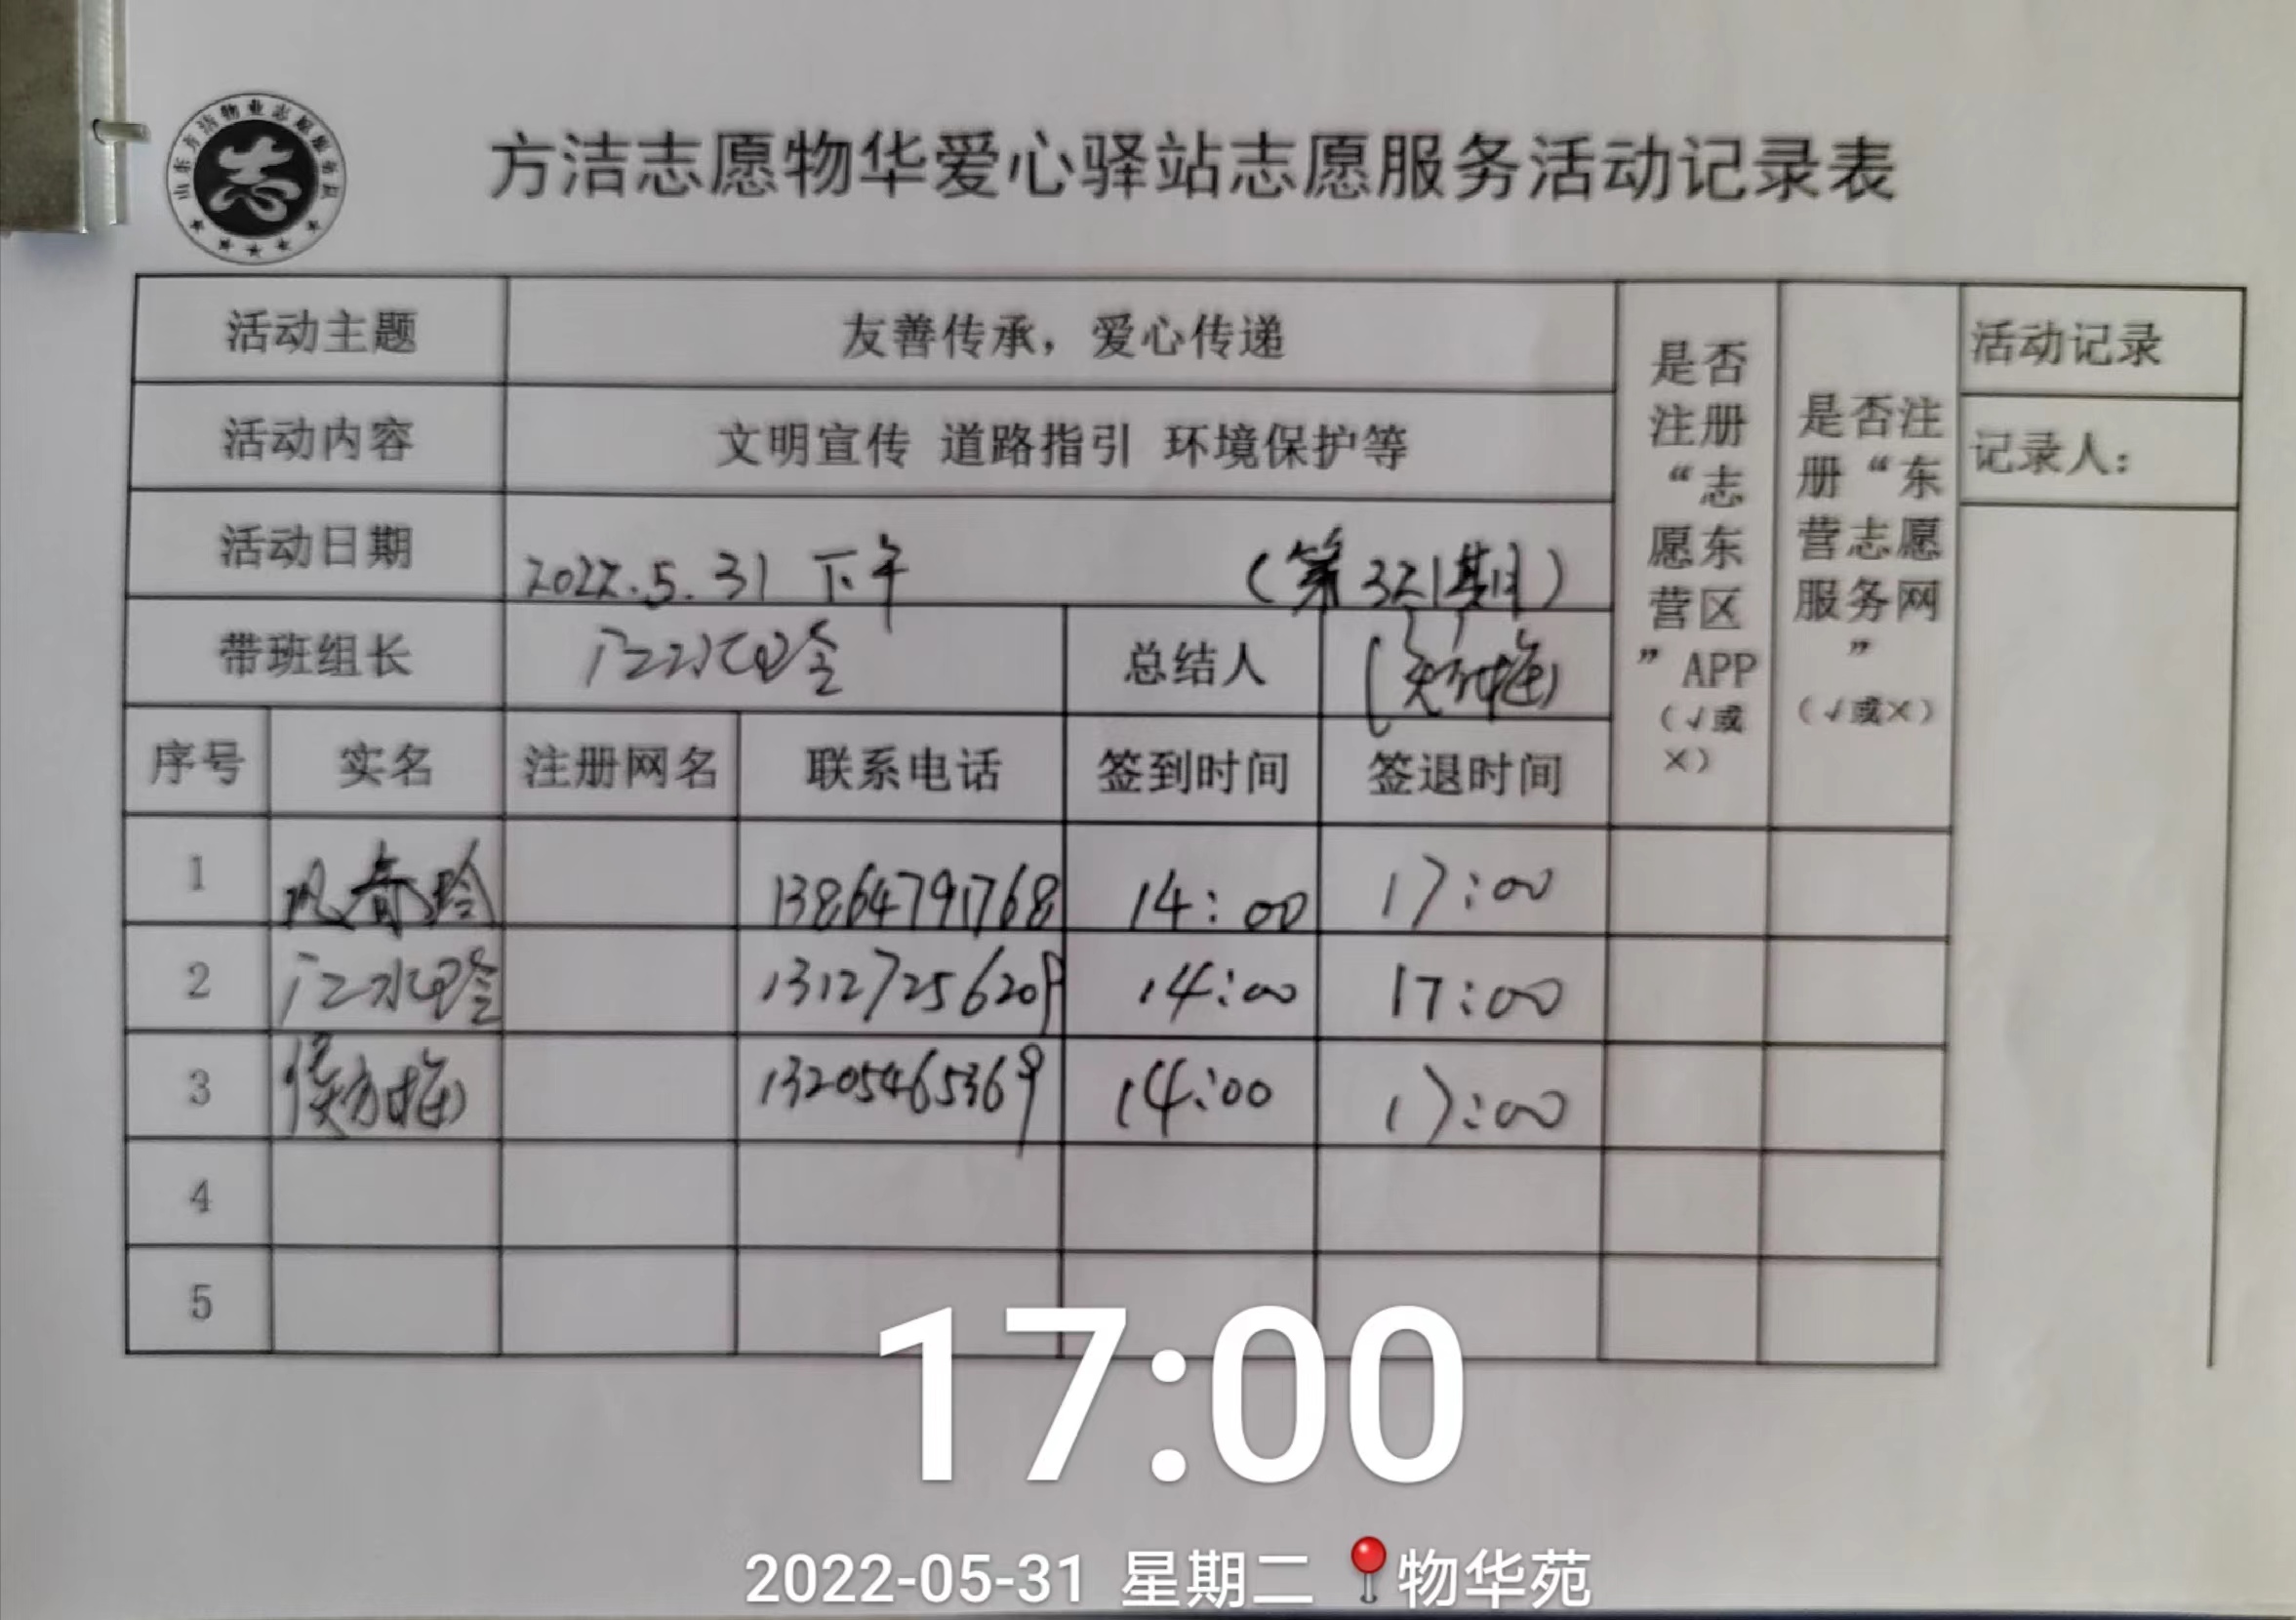 方洁志愿物华爱心驿站志愿服务活动记录表
志
活动主题 友善传承，爱心传递
活动内容 文明宣传 道路指引 环境保护等
活动日期 2022.5.31 下午 （第321期）
带班组长 总结人
序号 实名 注册网名 联系电话 签到时间 签退时间
是否注册“志愿东营区”APP（√或×）
是否注册“东营志愿服务网”（√或×）
活动记录
记录人：
1 13864791768 14:00 17:00
2 13127256209 14:00 17:00
3 侯方梅 13205465369 14:00 17:00
4
5
17:00
2022-05-31 星期二 物华苑